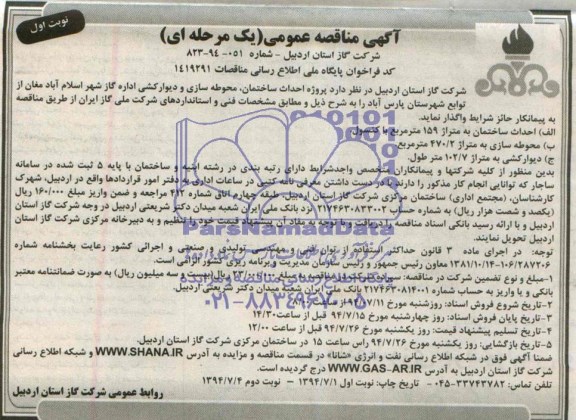 نوبت اول
آگهی مناقصه عمومی(یک مرحله ای)
شرکت گاز استان اردبیل - شماره ۰۵۱-۹۴-۸۲۳
کد فراخوان پایگاه ملی اطلاع رسانی مناقصات ۱۴۱۹۲۹۱
شرکت گاز استان اردبیل در نظر دارد پروژه احداث ساختمان، محوطه سازی و دیوارکشی اداره گاز شهر اسلام آباد مغان از
توابع شهرستان پارس آباد را به شرح ذیل و مطابق مشخصات فنی و استانداردهای شرکت ملی گاز ایران از طریق مناقصه
به پیمانکار حائز شرایط واگذار نماید.
الف) احداث ساختمان به متراژ ۱۵۹ مترمربع با کنسول
ب) محوطه سازی به متراژ ۴۷۰/۲ مترمربع
ج) دیوارکشی به متراژ ۱۰۲/۷ متر طول.
بدین منظور از کلیه شرکتها و پیمانکاران متخصص واجدشرایط دارای رتبه بندی در رشته ابنیه و ساختمان با پایه ۵ ثبت شده در سامانه
ساجار که توانایی انجام کار مذکور را دارند با در دست داشتن معرفی نامه کتبی در ساعات اداری به دفتر امور قراردادها واقع در اردبیل، شهرک
کارشناسان، (مجتمع اداری) ساختمان مرکزی شرکت گاز استان اردبیل، طبقه چهارم اتاق شماره ۴۱۲ مراجعه و ضمن واریز مبلغ ۱۶۰/۰۰۰ ریال
(یکصد و شصت هزار ریال) به شماره حساب ۲۱۷۴۶۳۰۸۳۳۰۰۲ نزد بانک ملی ایران شعبه میدان دکتر شریعتی اردبیل در وجه شرکت گاز استان
اردبیل و با ارائه رسید بانکی اسناد مناقصه را دریافت و با توجه به مفاد آن پیشنهاد قیمت خود را تنظیم و به دبیرخانه مرکزی شرکت گاز استان
اردبیل تحویل نمایند.
توجه: در اجرای ماده ۳ قانون حداکثر استفاده از توان فنی و مهندسی تولیدی و صنعتی و اجرائی کشور رعایت بخشنامه شماره
۱۳۸۱/۱۰/۱۴-۱۰۶/۲۸۷۲۰۶ معاون رئیس جمهور و رئیس سازمان مدیریت و برنامه ریزی کشور الزامی است.
۱-مبلغ و نوع تضمین شرکت در مناقصه: سپرده شرکت در مناقصه به مبلغ ریال(بیست و سه میلیون ریال) به صورت ضمانتنامه معتبر
بانکی و یا واریز به حساب شماره ۲۱۷۴۶۳۰۸۱۴۰۰۱ بانک ملی ایران شعبه میدان دکتر شریعتی اردبیل.
۲-تاریخ شروع فروش اسناد: روزشنبه مورخ ۹۴/۷/۱۱ از ساعت
۳-تاریخ پایان فروش اسناد: روز چهارشنبه مورخ ۹۴/۷/۱۵ تا ساعت ۱۴/۳۰
۴-تاریخ تسلیم پیشنهاد قیمت: روز یکشنبه مورخ ۹۴/۷/۲۶ تا ساعت ۱۲/۰۰
۵-تاریخ بازگشایی: روز یکشنبه مورخ ۹۴/۷/۲۶ راس ساعت ۱۵ در ساختمان مرکزی شرکت گاز استان اردبیل.
ضمنا آگهی فوق در شبکه اطلاع رسانی نفت و انرژی «شانا» در قسمت مناقصه و مزایده به آدرس WWW.SHANA.IR و شبکه اطلاع رسانی
شرکت گاز استان اردبیل به آدرس WWW.GAS-AR.IR درج گردیده است.
تلفن تماس: ۳۳۷۴۳۷۸۲-۰۴۵ - تاریخ چاپ: نوبت اول ۱۳۹۴/۷/۱ - نوبت دوم ۱۳۹۴/۷/۴
روابط عمومی شرکت گاز استان اردبیل
ParsNamadData
۰۲۱-۸۸۳۴۹۶۷۰-۵